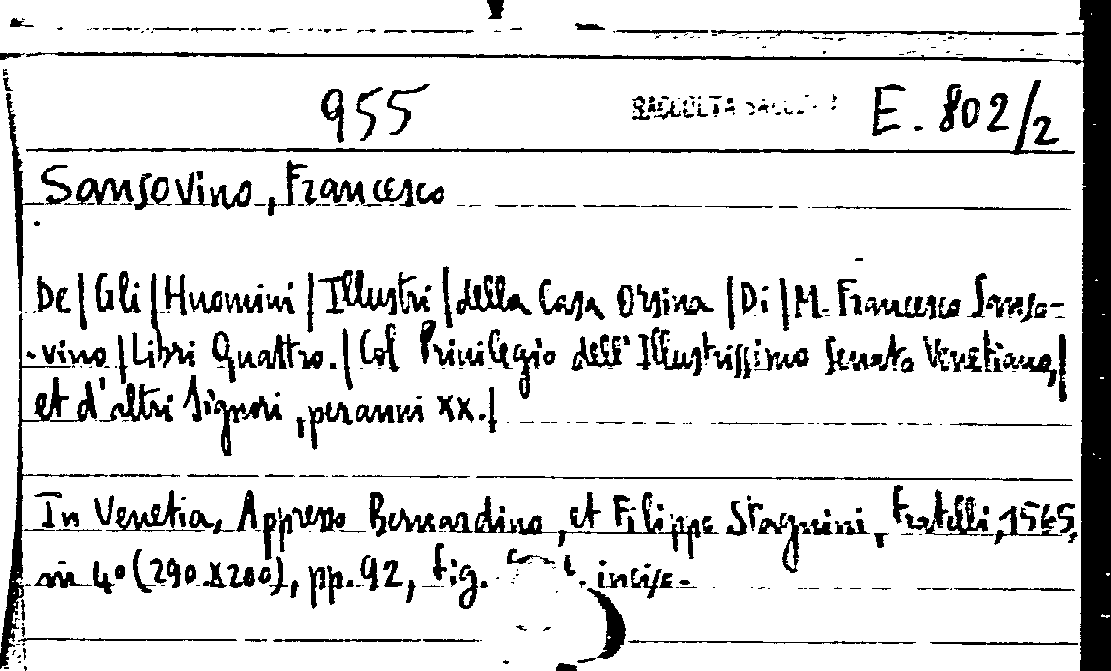 955 RACCOLTA E. 802/2
Sansovino, Francesco
De | Gli | Huomini | Illustri | della Casa Orsina | Di | M. Francesco Sanso-
-vino | Libri Quattro. | Col Privilegio dell' Illustrissimo Senato Venetiano, |
et d'altri Signori, per anni XX. |
In Venetia, Appresso Bernardino, et Filippo Stagnini, fratelli, 1565,
in 4° (290 x 200), pp. 92, fig. incise.